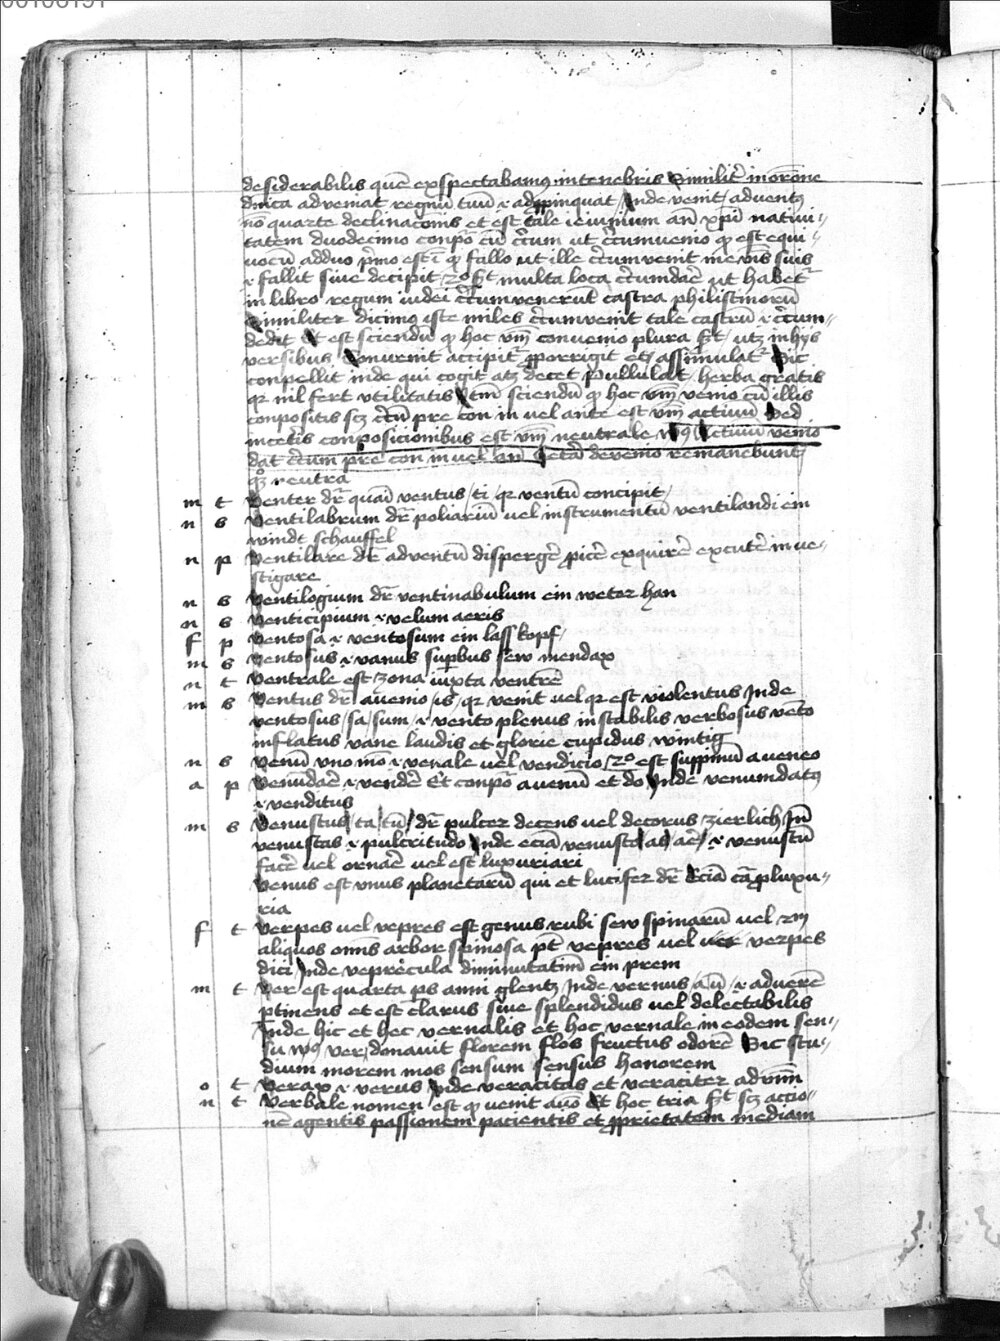 desiderabilis quē exspectabamus in tenebris Similit̄ in orōne
dn̄ica adveniat regnū tuū ⁊ adp̱pinquat / Inde venit / adventꝰ
nō quarte declinacōnis et est tale ieiunium an̄ xp̄i nativi⸗
tatem duodecimo conpōr cū c̄cum ut c̄cumvenio qͥ est equi⸗
vocū ad duo pͥmo est ī qͥ fallo ut ille c̄cumvenit me v̄bis suis
⁊ fallit sive decipit / 2ͦ multa loca c̄cumdar̄e ut habetᷣ
in libro regum iudei c̄cumvenerūt castra philistinorū
Similiter dicimꝰ iste miles c̄cumvenit tale castrū ⁊ c̄cum⸗
dedit Et est sciendū qͥ hoc v̄bū convenio plura / utꝫ in hijs
versibus / Convenit accipitᷣ p̱porrigit et / assimulatᷣ Sic
conpellit inde qui cogit atqꝫ decet Pullulat herba gratis
qꝛ nil fert vtilitatis Itm̄ sciendū qͥ hoc v̄bū venio cū illis
conpositis scꝫ c̄cū pre con in vel ante est v̄bū activū Sed
in cet̄is conposicionibus est v̄bū neutrale Activū venio
dat c̄cum pre con in vel an̄ Cetā de venio remanebunt
neutra
m t Venter dr̄ quasi ventus / ti / qꝛ ventū concipit /
n s Ventilabrum dr̄ poliariū vel instrumentū ventilandi ein
windt schauffel
n p Ventilare dr̄ ad ventū disperger̄e exquirer̄e excuter̄e inve⸗
stigare
n s Ventilogium dr̄ ventinabulum ein weter han
n s Venticipium ⁊ velum aeris
f p Ventosa ⁊ ventosum ein lass kopf /
m s Ventosus ⁊ vanus sup̱bus sew mendax
n t Ventrale est zona iuxta ventrē
m s Ventus dr̄ a venio / is / qꝛ venit vel qꝛ est violentus Inde
ventosus / sa / sum / ⁊ vento plenus instabilis verbosus vēto
inflatus vane laudis et glorie cupidus wintig
n s Venū vno mō ⁊ venale vel vendicio / 2ͦ est suppinū a veneo
a p Venūdar̄e ⁊ vender̄e Et conpōr a venū et do Inde venumdatꝰ
⁊ venditus
m s Venustus / ta / tū / dr̄ pulcer decens vel decorus / zierlich In̄
venustas ⁊ pulcritudo Inde eciā venusto / as / ar̄e / ⁊ venustū
facer̄e vel ornar̄e vel est luxuriari
Venus est vnus planetarū qui et lucifer dr̄ Eciā luxu⸗
ria
f t Verpes vel vepres est genus rubi sew spinarū vel
aliquos om̄is arbor spinosa pt̄ vepres vel verpes
dici / Inde veprecula diminutatim̄ ein prem
m t Ver est quarta ps anni glentz / Inde vernus / a / ū / ⁊ ad ver̄e
ptinens et est clarus sive splendidus vel delectabilis
Inde hic et hec vernalis et hoc vernale in eodem sen⸗
su ver donavit florem flos fructus odorē Sic stu⸗
dium morem mos sensum sensus honorem
o t Verax ⁊ verus Inde veracitas et veraciter adv̄biū
n t Verbale nomen est qͥ venit Et hoc tria scꝫ accio⸗
nē agentis passionem pacientis et p̱prietatem mediam